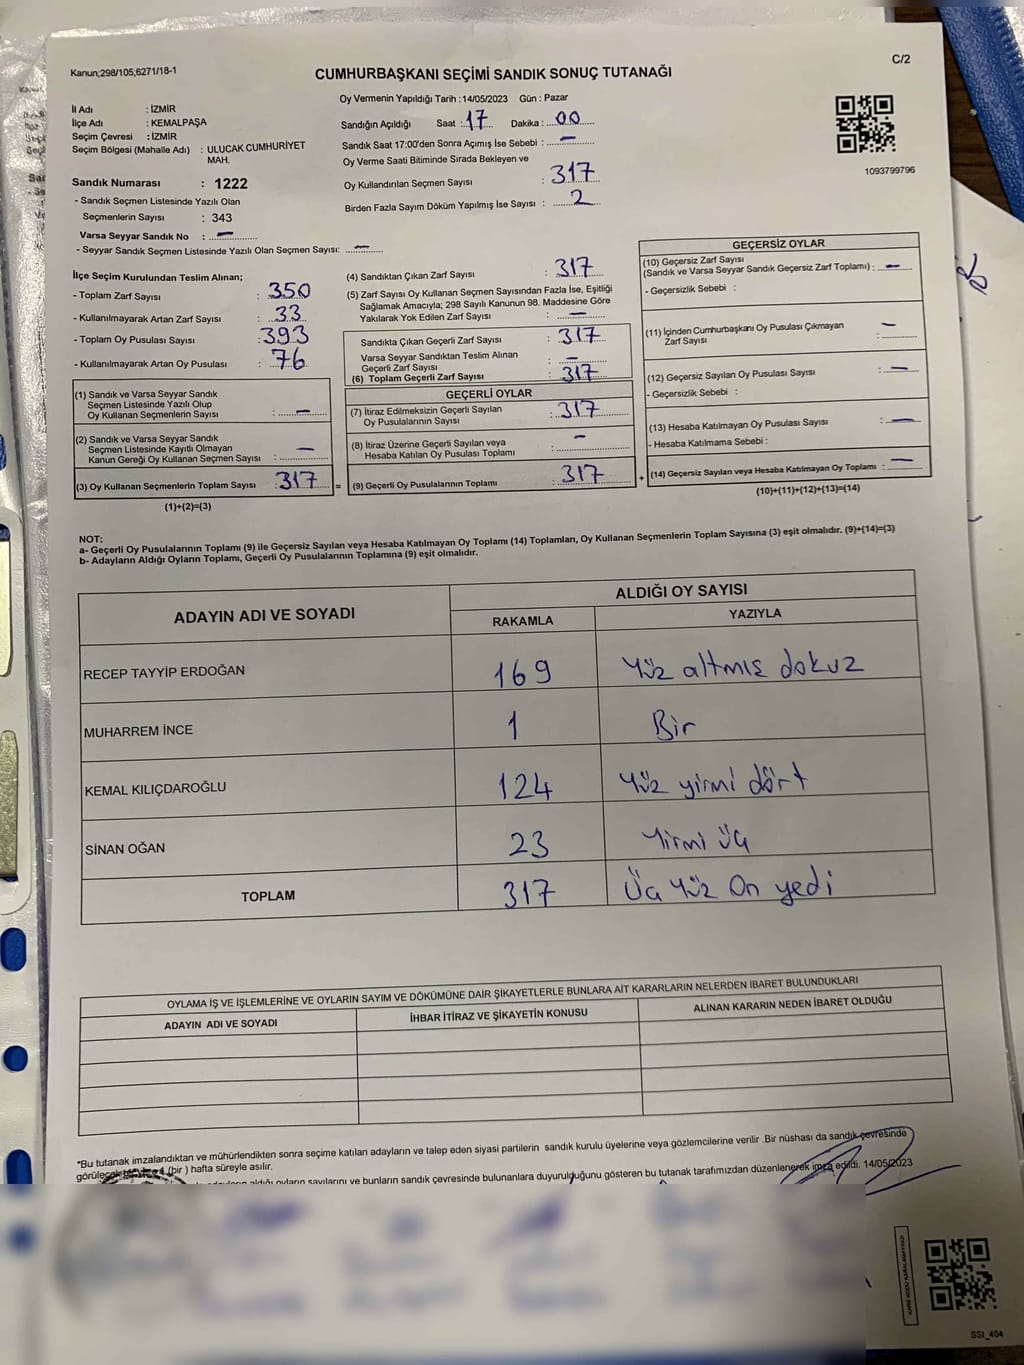 Kanun;298/105,6271/18-1
C/2
CUMHURBAŞKANI SEÇİMİ SANDIK SONUÇ TUTANAĞI
Oy Vermenin Yapıldığı Tarih :14/05/2023 Gün : Pazar
İl Adı : İZMİR
İlçe Adı : KEMALPAŞA
Seçim Çevresi : İZMİR
Seçim Bölgesi (Mahalle Adı) : ULUCAK CUMHURİYET
MAH.
Sandık Numarası : 1222
- Sandık Seçmen Listesinde Yazılı Olan
Seçmenlerin Sayısı : 343
Varsa Seyyar Sandık No : —
- Seyyar Sandık Seçmen Listesinde Yazılı Olan Seçmen Sayısı: —
Sandığın Açıldığı Saat : 17 Dakika : 00
Sandık Saat 17:00'den Sonra Açımış İse Sebebi : —
Oy Verme Saati Bitiminde Sırada Bekleyen ve
Oy Kullandırılan Seçmen Sayısı : 317
Birden Fazla Sayım Döküm Yapılmış İse Sayısı : 2
1093799796
İlçe Seçim Kurulundan Teslim Alınan;
- Toplam Zarf Sayısı : 350
- Kullanılmayarak Artan Zarf Sayısı : 33
- Toplam Oy Pusulası Sayısı : 393
- Kullanılmayarak Artan Oy Pusulası : 76
(1) Sandık ve Varsa Seyyar Sandık
Seçmen Listesinde Yazılı Olup
Oy Kullanan Seçmenlerin Sayısı : —
(2) Sandık ve Varsa Seyyar Sandık
Seçmen Listesinde Kayıtlı Olmayan
Kanun Gereği Oy Kullanan Seçmen Sayısı : —
(3) Oy Kullanan Seçmenlerin Toplam Sayısı : 317 =
(1)+(2)=(3)
(4) Sandıktan Çıkan Zarf Sayısı : 317
(5) Zarf Sayısı Oy Kullanan Seçmen Sayısından Fazla İse, Eşitliği
Sağlamak Amacıyla; 298 Sayılı Kanunun 98. Maddesine Göre
Yakılarak Yok Edilen Zarf Sayısı : —
Sandıkta Çıkan Geçerli Zarf Sayısı : 317
Varsa Seyyar Sandıktan Teslim Alınan
Geçerli Zarf Sayısı : —
(6) Toplam Geçerli Zarf Sayısı : 317
GEÇERLİ OYLAR
(7) İtiraz Edilmeksizin Geçerli Sayılan
Oy Pusulasının Sayısı : 317
(8) İtiraz Üzerine Geçerli Sayılan veya
Hesaba Katılan Oy Pusulası Toplamı : —
(9) Geçerli Oy Pusulalarının Toplamı : 317 +
GEÇERSİZ OYLAR
(10) Geçersiz Zarf Sayısı
(Sandık ve Varsa Seyyar Sandık Geçersiz Zarf Toplamı) : —
- Geçersizlik Sebebi :
(11) İçinden Cumhurbaşkanı Oy Pusulası Çıkmayan
Zarf Sayısı : —
(12) Geçersiz Sayılan Oy Pusulası Sayısı : —
- Geçersizlik Sebebi :
(13) Hesaba Katılmayan Oy Pusulası Sayısı : —
- Hesaba Katılmama Sebebi :
(14) Geçersiz Sayılan veya Hesaba Katılmayan Oy Toplamı : —
(10)+(11)+(12)+(13)=(14)
NOT:
a- Geçerli Oy Pusulalarının Toplamı (9) ile Geçersiz Sayılan veya Hesaba Katılmayan Oy Toplamı (14) Toplamları, Oy Kullanan Seçmenlerin Toplam Sayısına (3) eşit olmalıdır. (9)+(14)=(3)
b- Adayların Aldığı Oyların Toplamı, Geçerli Oy Pusulalarının Toplamına (9) eşit olmalıdır.
ADAYIN ADI VE SOYADI
ALDIĞI OY SAYISI
RAKAMLA YAZIYLA
RECEP TAYYİP ERDOĞAN 169 Yüz altmış dokuz
MUHARREM İNCE 1 Bir
KEMAL KILIÇDAROĞLU 124 Yüz yirmi dört
SİNAN OĞAN 23 Yirmi üç
TOPLAM 317 Üç Yüz On yedi
OYLAMA İŞ VE İŞLEMLERİNE VE OYLARIN SAYIM VE DÖKÜMÜNE DAİR ŞİKAYETLERLE BUNLARA AİT KARARLARIN NELERDEN İBARET BULUNDUKLARI
ADAYIN ADI VE SOYADI İHBAR İTİRAZ VE ŞİKAYETİN KONUSU ALINAN KARARIN NEDEN İBARET OLDUĞU
*Bu tutanak imzalandıktan ve mühürlendikten sonra seçime katılan adayların ve talep eden siyasi partilerin sandık kurulu üyelerine veya gözlemcilerine verilir .Bir nüshası da sandık çevresinde
görülecek (bir ) hafta süreyle asılır.
aldığı oyların sayılarını ve bunların sandık çevresinde bulunanlara duyurulduğunu gösteren bu tutanak tarafımızdan düzenlenerek imza edildi. 14/05/2023
KARE KODU KARALAMAYINIZ!
SSI_404